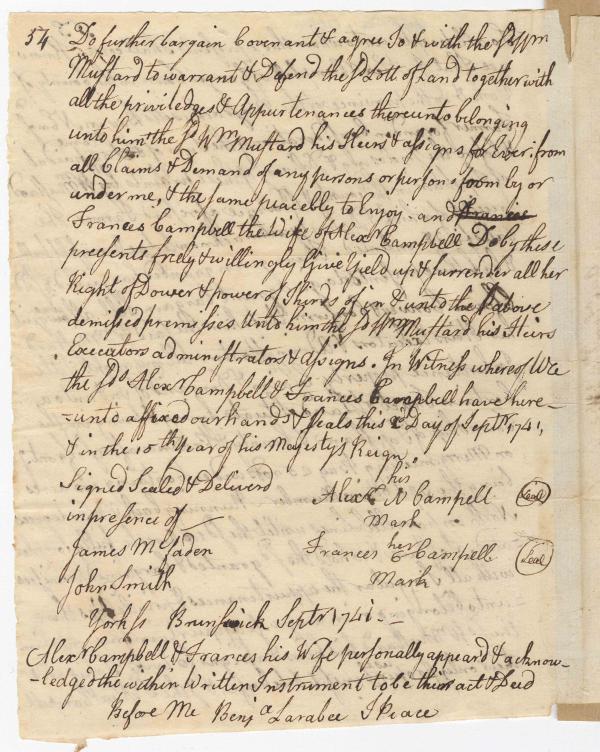 54 Do further bargain Covenant & agree To & with the sd Wm
Mustard to warrant & Defend the sd Lott of Land together with
all the priviledges & Appurtenances thereunto belonging
unto him the sd Wm Mustard his Heirs & assigns for Ever: from
all Claims & Demand of any persons or person s from by or
under me, & the same peacebly to Enjoy - and Francis
Frances Campbell the Wife of Alexr Campbell Do by these
presents freely & willingly Give Yield up & surrender all her
Right of Dower & power of Thirds of in & unto the above
demised premisses Unto him the sd Wm Mustard his Heirs
Executors administrators & assigns. In Witness whereof We
the sds Alexr Campbell & Frances Campbell have here-
=unto affixed our hands & seals this 2d Day of Septr 1741,
& in the 15th Year of his Majestys Reign
Signed Sealed & Deliverd
in presence of
James McFaden
John Smith
his
Alexr N Campell Seal
Mark
Frances her C Campell Seal
Mark
York ss Brunswick Septr 1741 -
Alexr Campbell & Frances his Wife personally appeard & acknow-
-ledged the within Written Instrument to be their act & Deed
Before Me Benja Larabee J Peace